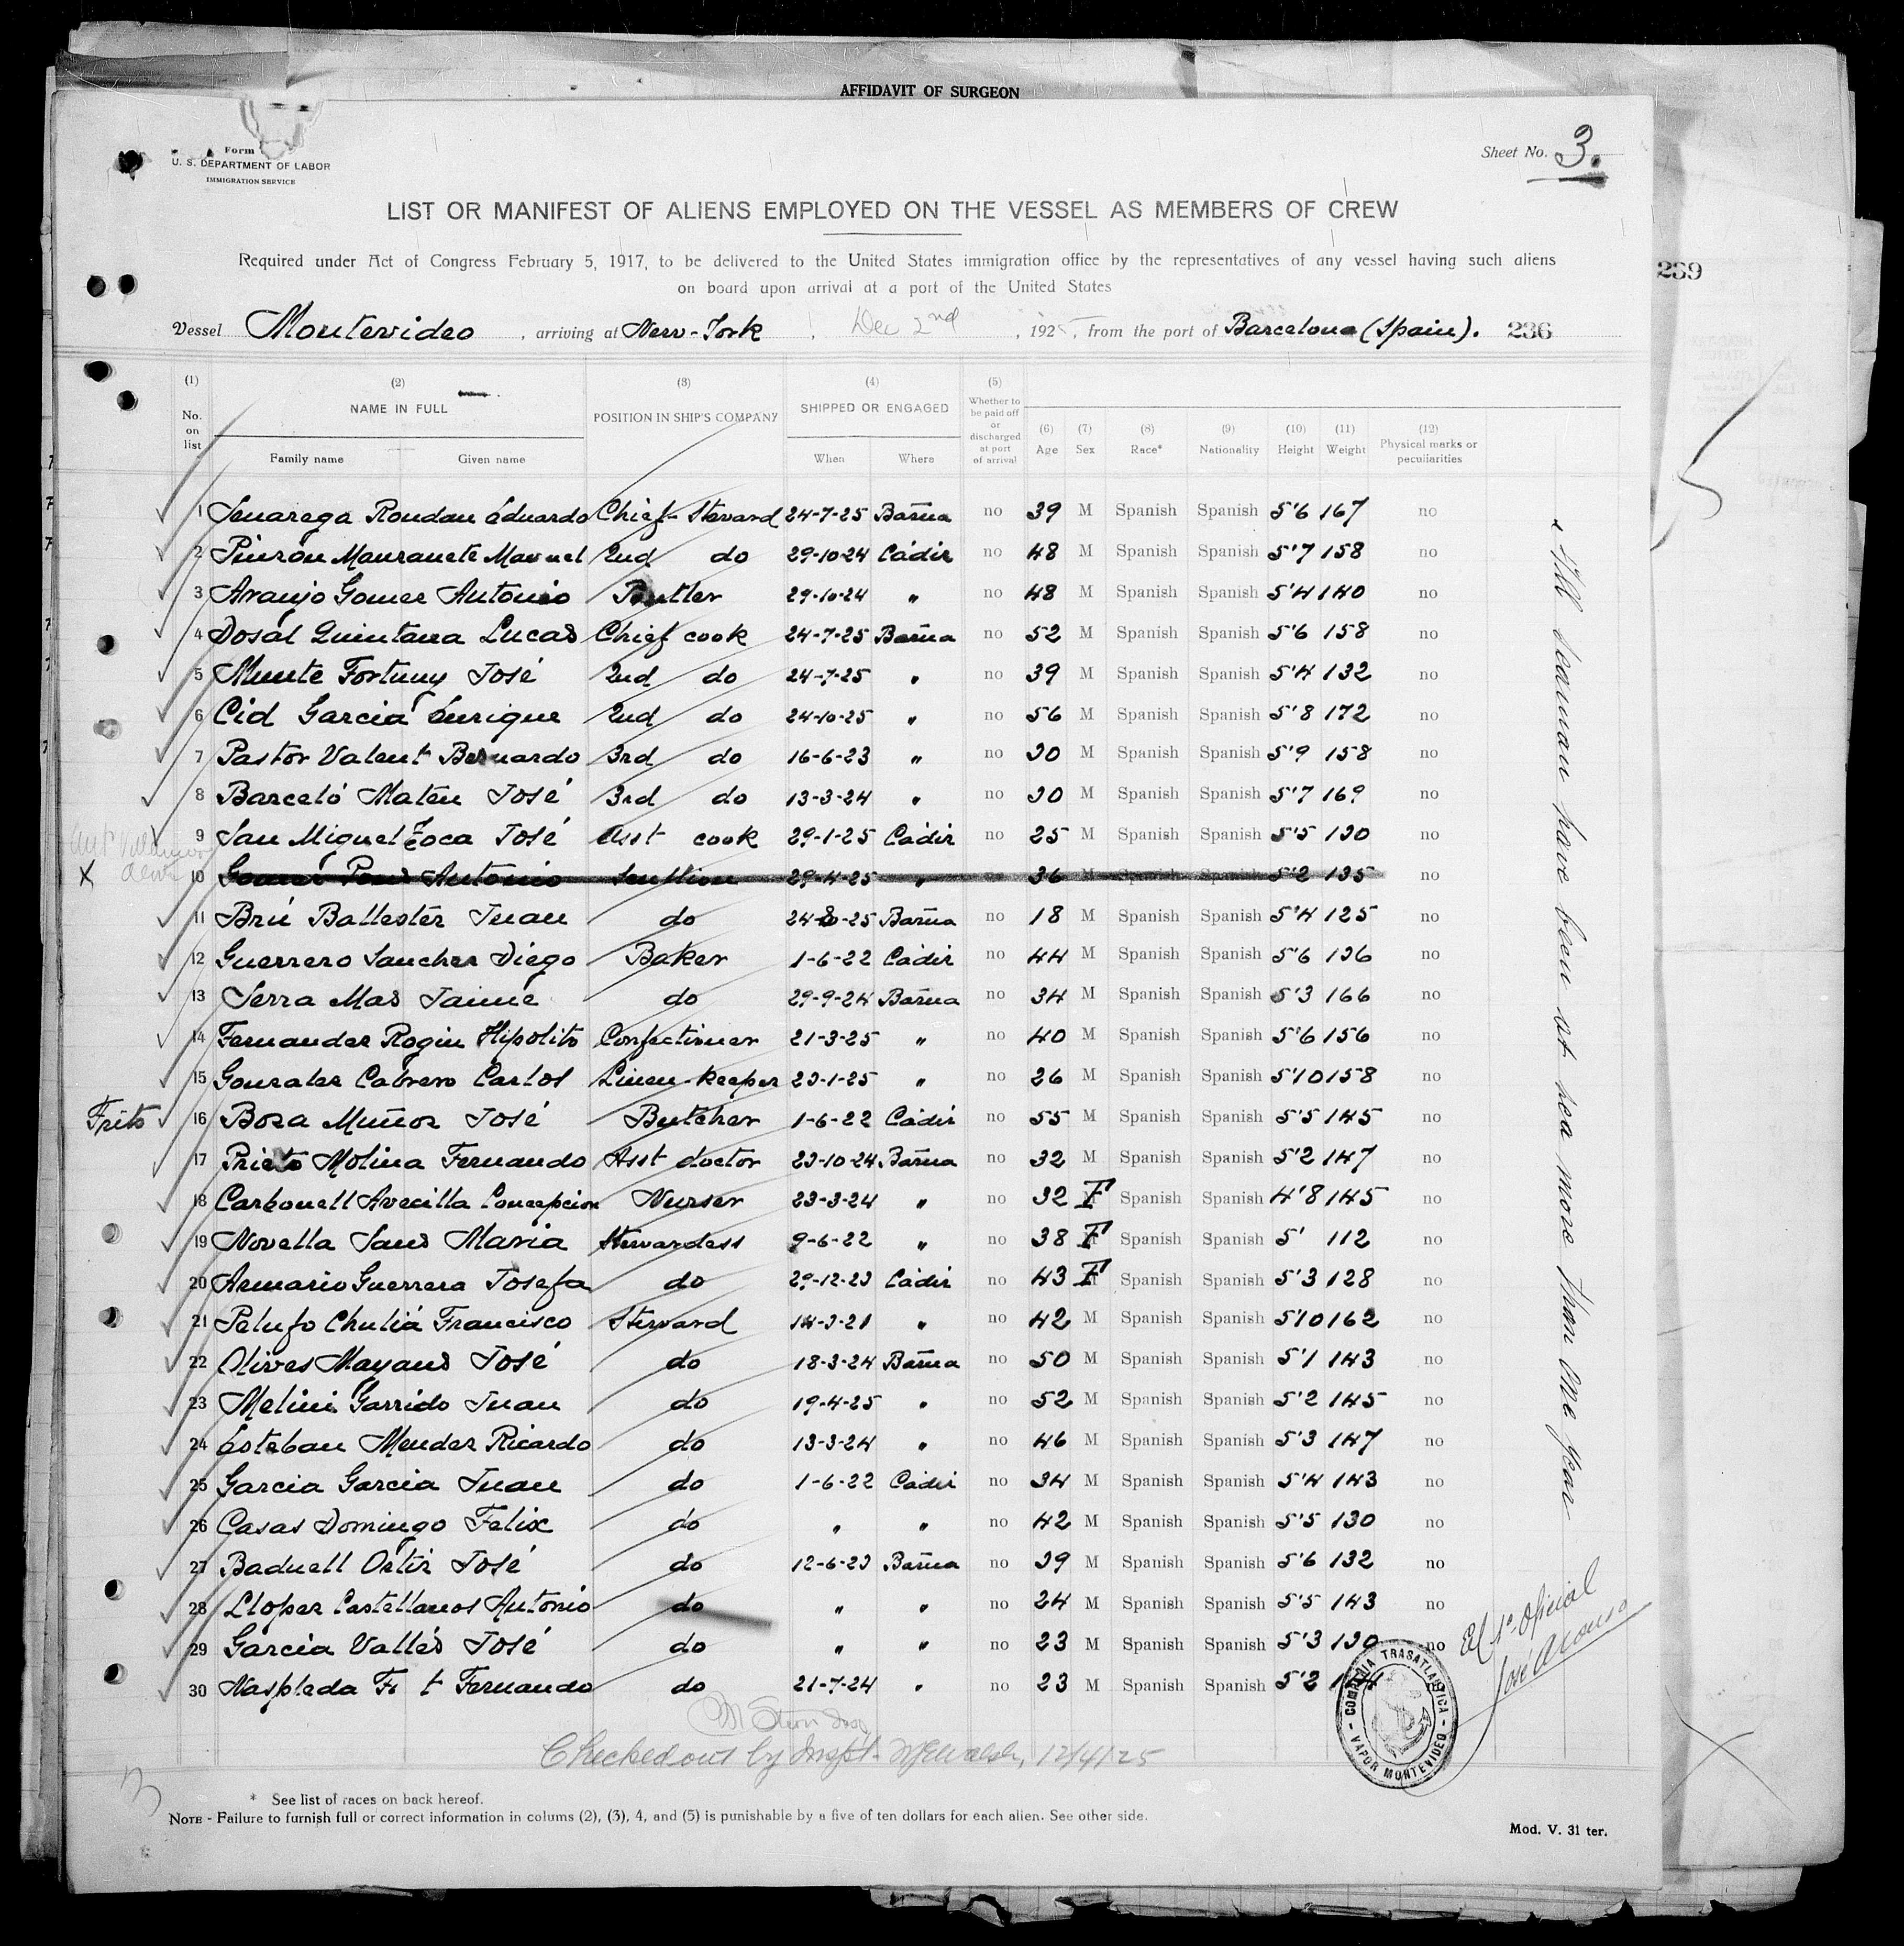 AFFIDAVIT OF SURGEON
Form
U. S. DEPARTMENT OF LABOR
IMMIGRATION SERVICE
Sheet No. 3.
LIST OR MANIFEST OF ALIENS EMPLOYED ON THE VESSEL AS MEMBERS OF CREW
Required under Act of Congress February 5, 1917, to be delivered to the United States immigration office by the representatives of any vessel having such aliens
on board upon arrival at a port of the United States
239
Vessel Montevideo, arriving at New-York, Dec 2nd, 1925, from the port of Barcelona (Spain). 236
(1) No. on list (2) NAME IN FULL Family name Given name (3) POSITION IN SHIP'S COMPANY (4) SHIPPED OR ENGAGED When Where (5) Whether to be paid off or discharged at port of arrival (6) Age (7) Sex (8) Race* (9) Nationality (10) Height (11) Weight (12) Physical marks or peculiarities
1 Senarega Roudan Eduardo Chief-Steward 24-7-25 Barña no 39 M Spanish Spanish 5'6 167 no
2 Manuel 2nd do 29-10-24 Cádiz no 48 M Spanish Spanish 5'7 158 no
3 Araujo Gomez Antonio Butler 29-10-24 " no 48 M Spanish Spanish 5'4 140 no
4 Dosál Quintana Lucas Chief cook 24-7-25 Barña no 52 M Spanish Spanish 5'6 158 no
5 Munte Fortuny José 2nd do 24-7-25 " no 39 M Spanish Spanish 5'4 132 no
6 Cid Garcia Enrique 2nd do 24-10-25 " no 56 M Spanish Spanish 5'8 172 no
7 Pastor Valent Bernardo 3rd do 16-6-23 " no 30 M Spanish Spanish 5'9 158 no
8 Barceló Mateu José 3rd do 13-3-24 " no 30 M Spanish Spanish 5'7 169 no
9 San Miguel Toca José Asst cook 29-1-25 Cádiz no 25 M Spanish Spanish 5'5 130 no
X 10 Antonio Scullion 29-4-25 " no 36 M Spanish Spanish 5'2 135 no
11 Brú Ballester Juan do 24-8-25 Barña no 18 M Spanish Spanish 5'4 125 no
12 Guerrero Sanchez Diego Baker 1-6-22 Cádiz no 44 M Spanish Spanish 5'6 136 no
13 Serra Mas Jaime do 29-9-24 Barña no 34 M Spanish Spanish 5'3 166 no
14 Fernandez Rogin Hipolito Confectioner 21-3-25 " no 40 M Spanish Spanish 5'6 156 no
15 Gonzalez Cabrero Carlos Linen-keeper 23-1-25 " no 26 M Spanish Spanish 5'10 158 no
Frito 16 Boza Muñoz José Butcher 1-6-22 Cádiz no 55 M Spanish Spanish 5'5 145 no
17 Prieto Molina Fernando Asst doctor 23-10-24 Barña no 32 M Spanish Spanish 5'2 147 no
18 Carbonell Avecilla Concepcion Nurser 23-3-24 " no 32 F Spanish Spanish 4'8 145 no
19 Novella Sans Maria Stewardess 9-6-22 " no 38 F Spanish Spanish 5' 112 no
20 Armario Guerrero Josefa do 29-12-23 Cádiz no 43 F Spanish Spanish 5'3 128 no
21 Pelufo Chuliá Francisco Steward 14-3-21 " no 42 M Spanish Spanish 5'10 162 no
22 Olives Mayans José do 18-3-24 Barña no 50 M Spanish Spanish 5'1 143 no
23 Melini Garrido Juan do 19-4-25 " no 52 M Spanish Spanish 5'2 145 no
24 Esteban Mendez Ricardo do 13-3-24 " no 46 M Spanish Spanish 5'3 147 no
25 Garcia Garcia Juan do 1-6-22 Cádiz no 34 M Spanish Spanish 5'4 143 no
26 Casas Domingo Felix do " " no 42 M Spanish Spanish 5'5 130 no
27 Baduell Ortiz José do 12-6-23 Barña no 39 M Spanish Spanish 5'6 132 no
28 Llopez Castellanos Antonio do " " no 24 M Spanish Spanish 5'5 143 no
29 Garcia Vallés José do " " no 23 M Spanish Spanish 5'3 130 no
30 Naspleda Fernando do 21-7-24 " no 23 M Spanish Spanish 5'2
"All seaman have been at sea more than one year
El 1º Oficial
José Alonso
COMPAÑIA TRASATLANTICA - VAPOR MONTEVIDEO -
Checked out by Inspt. Walsh, 12/4/25
* See list of races on back hereof.
NOTE - Failure to furnish full or correct information in colums (2), (3), 4, and (5) is punishable by a five of ten dollars for each alien. See other side.
Mod. V. 31 ter.